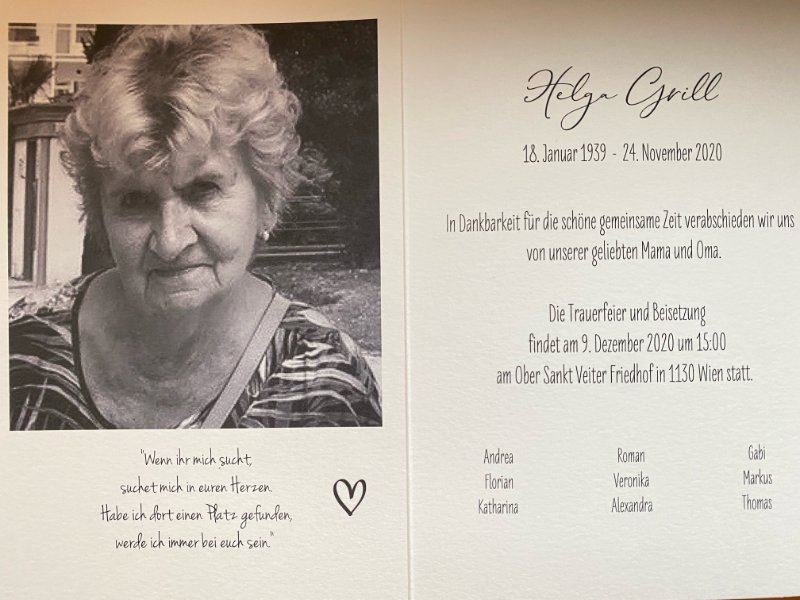 "Wenn ihr mich sucht,
suchet mich in euren Herzen.
Habe ich dort einen Platz gefunden,
werde ich immer bei euch sein."
Helga Grill
18. Januar 1939 - 24. November 2020
In Dankbarkeit für die schöne gemeinsame Zeit verabschieden wir uns
von unserer geliebten Mama und Oma.
Die Trauerfeier und Beisetzung
findet am 9. Dezember 2020 um 15:00
am Ober Sankt Veiter Friedhof in 1130 Wien statt.
Andrea Roman Gabi
Florian Veronika Markus
Katharina Alexandra Thomas